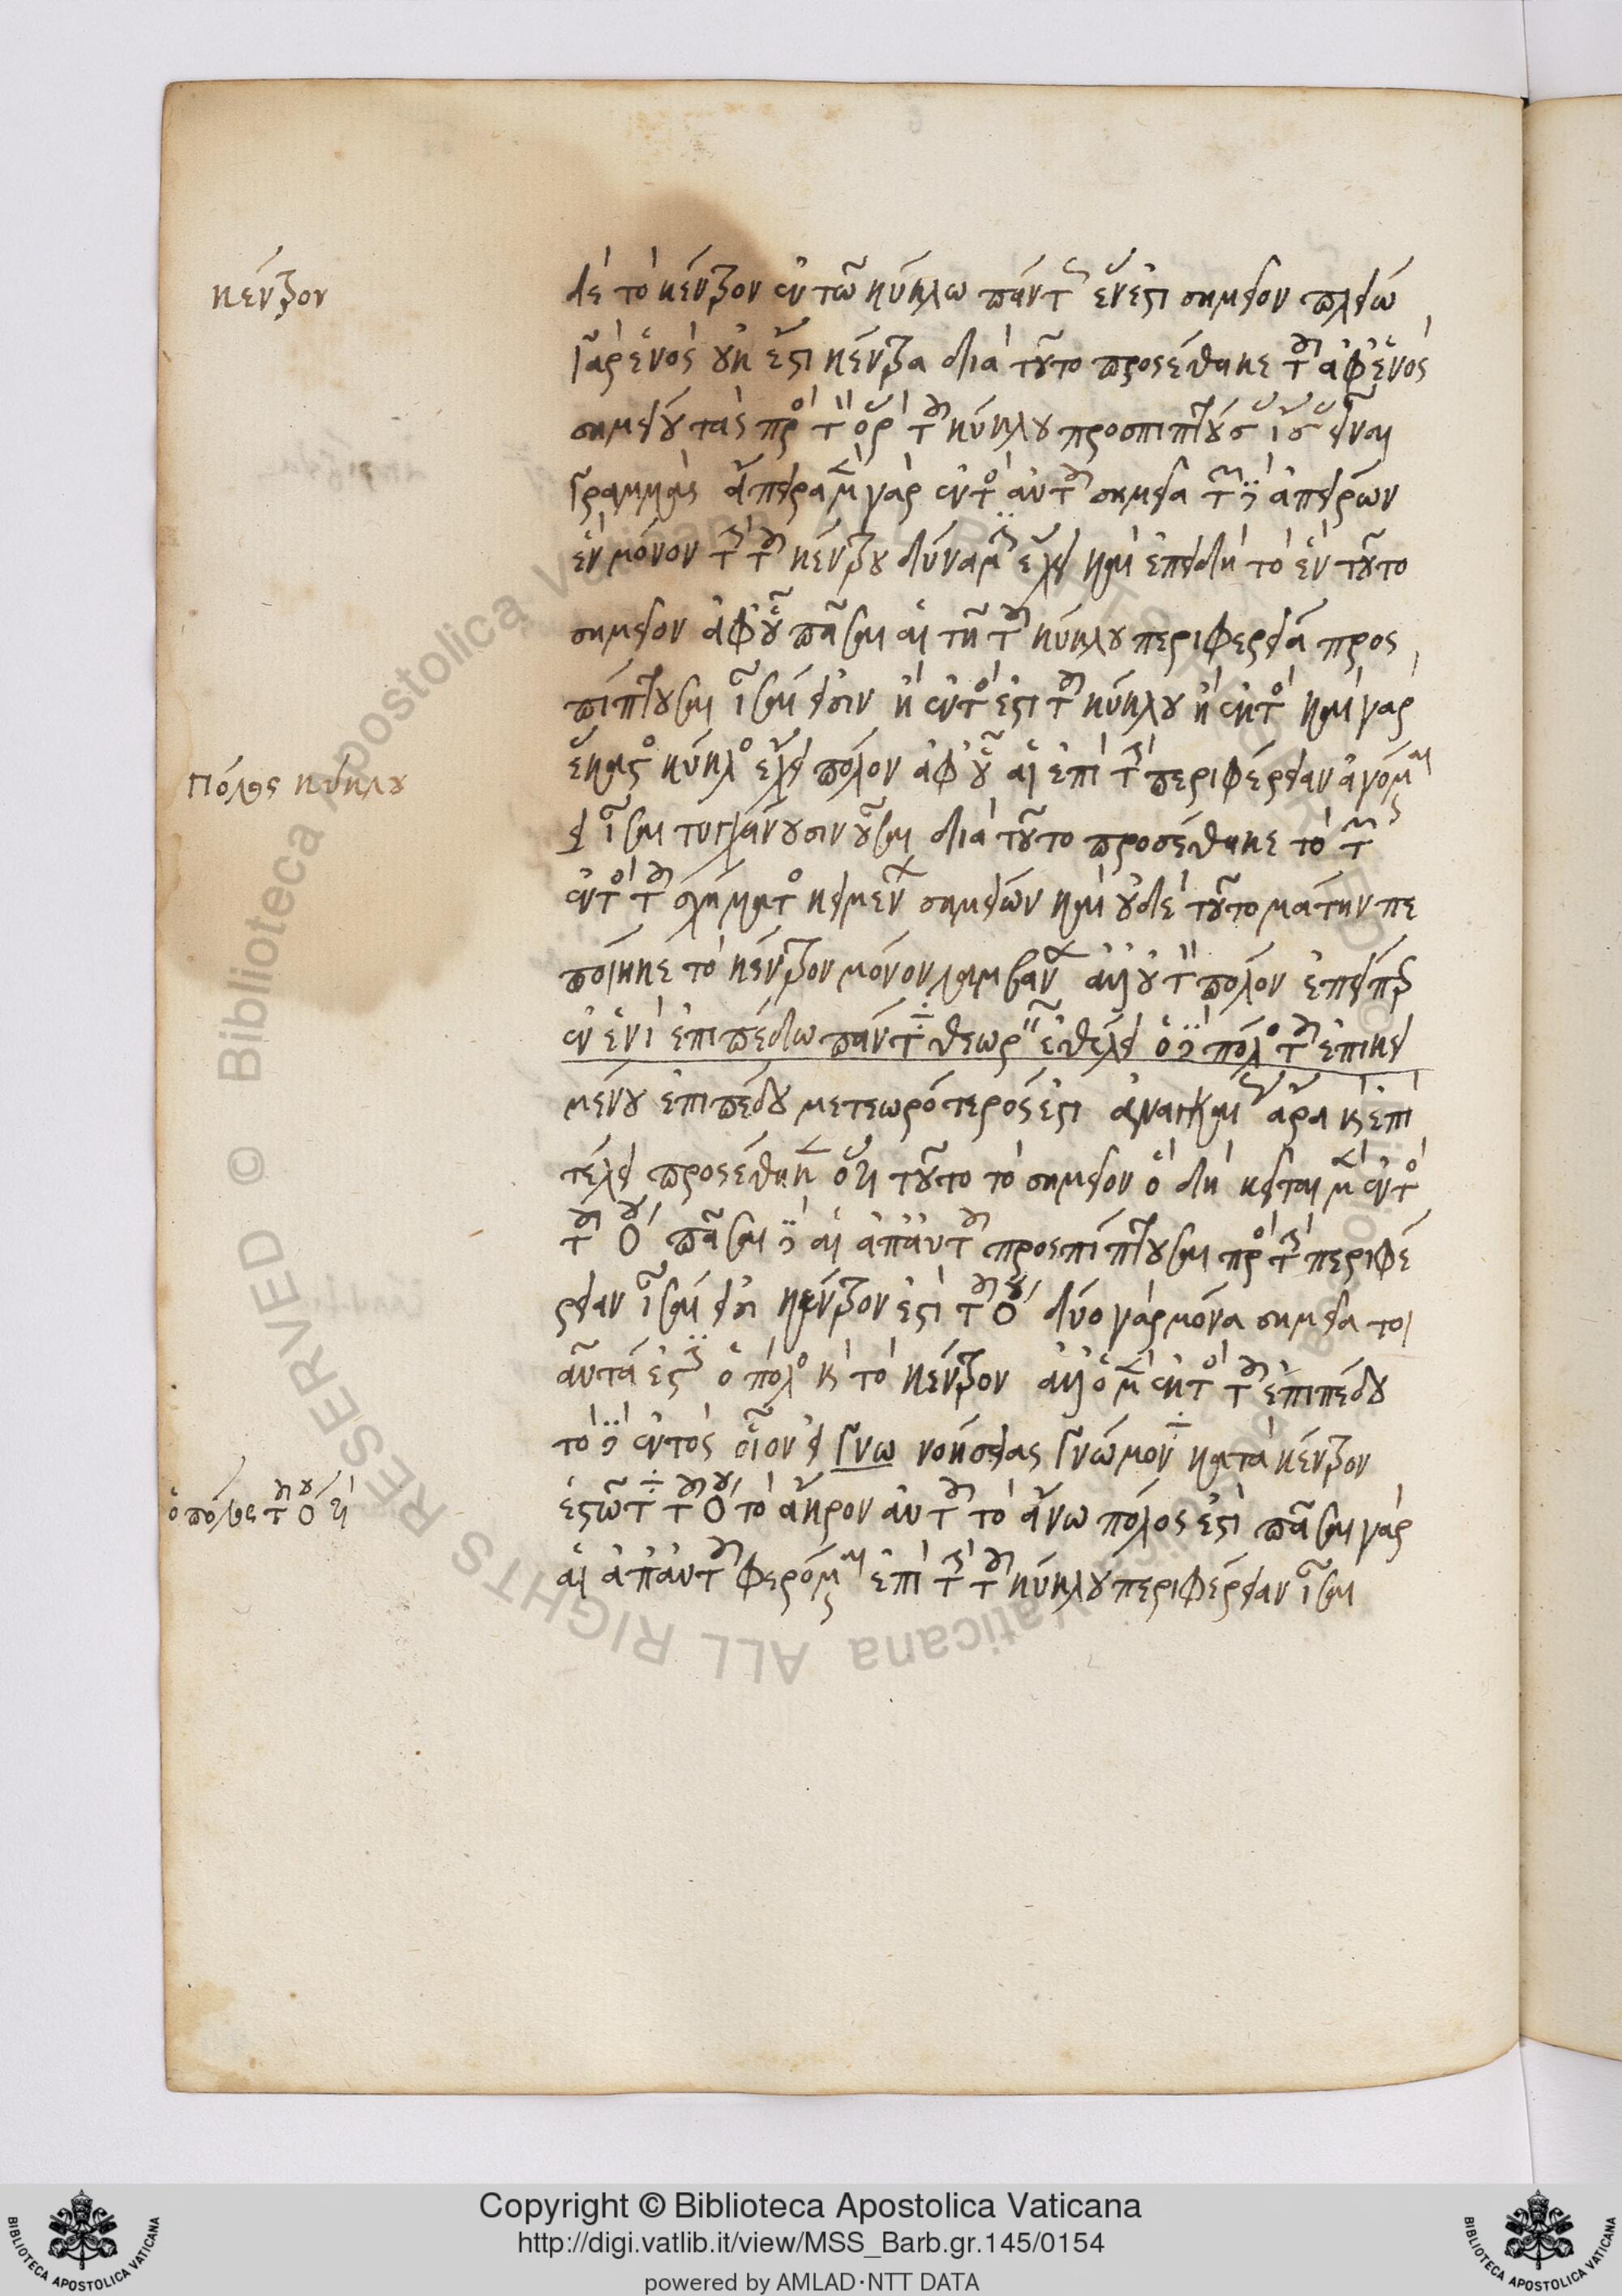 κέντρον
δὲ τὸ κέντρον ἐν τῶ κύκλω πάντως ἕν ἐστι σημεῖον πλείω
γὰρ ἑνὸς οὐκ ἔστι κέντρα διὰ τοῦτο προσέθηκε τοῦ ἀφ' ἑνὸς
σημείου τὰς πρὸς τὸν ὅρον τοῦ κύκλου προσπιπτούσας ἴσας εἶναι
γραμμάς ἄπειρα μὲν γὰρ ἐντὸς αὐτοῦ σημεῖα τῶν δὲ ἀπείρων
ἓν μόνον τὴν τοῦ κέντρου δύναμιν ἔχει καὶ ἐπειδὴ τὸ ἓν τοῦτο
σημεῖον ἀφ' οὗ πᾶσαι αἱ τῆ τοῦ κύκλου περιφερεία προς
πίπτουσαι ἴσαι εἰσὶν ἢ ἐντός ἐστι τοῦ κύκλου ἢ ἐκτός καὶ γὰρ
ἕκαστος κύκλος ἔχει πόλον ἀφ' οὗ αἱ ἐπὶ τὴν περιφέρειαν ἀγόμεναι
πόλος κύκλου
ἴσαι τυγχάνουσιν οὖσαι διὰ τοῦτο προσέθηκε τὸ τῶν
ἐντὸς τοῦ σχήματος κειμένων σημείων καὶ οὐδὲ τοῦτο μάτην πε
ποίηκε τὸ κέντρον μόνον λαμβάνων ἀλλ' οὐ τὸν πόλον ἐπείπερ
ἐν ἑνὶ ἐπιπέδω πάντα θεωρεῖν ἐθέλει ὁ δὲ πόλος τοῦ ἐπικει
μένου ἐπιπέδου μετεωρότερός ἐστι ἀναγκαίως ἄρα καὶ ἐπὶ
τέλει προσέθηκεν ὅτι τοῦτο τὸ σημεῖον ὃ δὴ κεῖται μὲν ἐντὸς
τοῦ κύκλου πᾶσαι δὲ αἱ ἀπ' αὐτοῦ προσπίπτουσαι πρὸς τὴν περιφέ
ρειαν ἴσαι εἰσὶ κέντρον ἐστὶ τοῦ κύκλου δύο γὰρ μόνα σημεῖα τοι
αῦτά ἐστιν ὁ πόλος καὶ τὸ κέντρον ἀλλ' ὁ μὲν ἐκτὸς τοῦ ἐπιπέδου
τὸ δὲ ἐντός οἷον εἰ γνω νοήσειας γνώμονα κατὰ κέντρον
ὁ πόλος τοῦ κύκλου τί
ἑστῶτα τοῦ κύκλου τὸ ἄκρον αὐτοῦ τὸ ἄνω πόλος ἐστὶ πᾶσαι γὰρ
αἱ ἀπ' αὐτοῦ φερόμεναι ἐπὶ τὴν τοῦ κύκλου περιφέρειαν ἴσαι
Copyright © Biblioteca Apostolica Vaticana
http://digi.vatlib.it/view/MSS_Barb.gr.145/0154
powered by AMLAD·NTT DATA